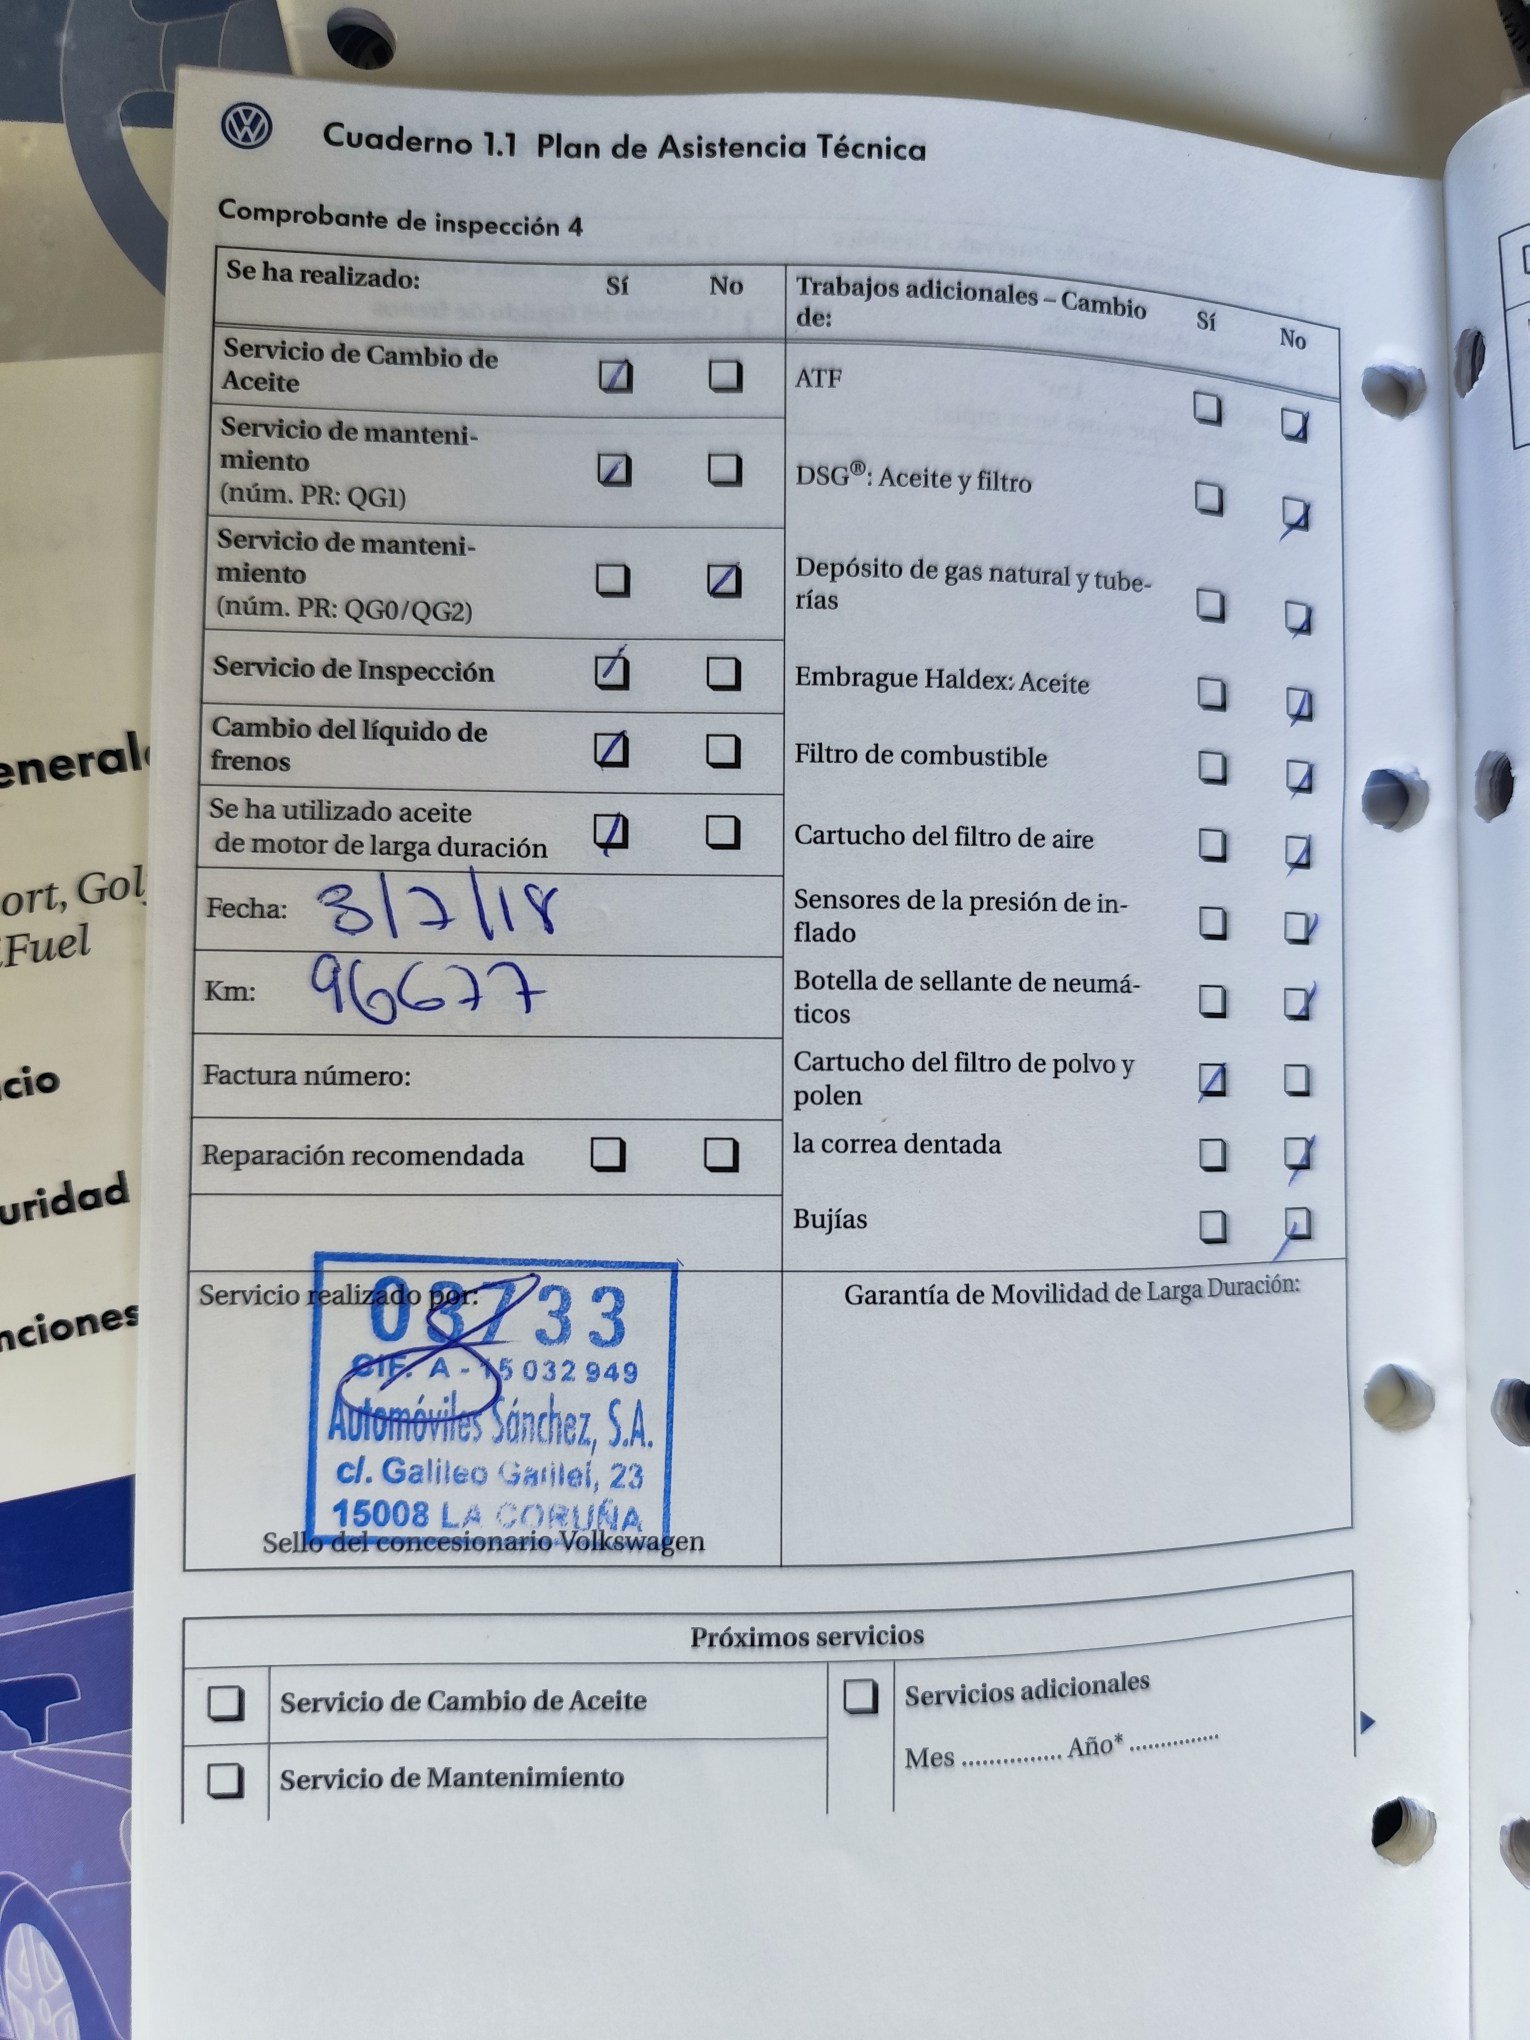 Cuaderno 1.1 Plan de Asistencia Técnica
Comprobante de inspección 4
Se ha realizado: Sí No
Servicio de Cambio de
Aceite
Servicio de manteni-
miento
(núm. PR: QG1)
Servicio de manteni-
miento
(núm. PR: QG0/QG2)
Servicio de Inspección
Cambio del líquido de
frenos
Se ha utilizado aceite
de motor de larga duración
Fecha: 3/7/18
Km: 96677
Factura número:
Reparación recomendada
Trabajos adicionales – Cambio
de: Sí No
ATF
DSG®: Aceite y filtro
Depósito de gas natural y tube-
rías
Embrague Haldex: Aceite
Filtro de combustible
Cartucho del filtro de aire
Sensores de la presión de in-
flado
Botella de sellante de neumá-
ticos
Cartucho del filtro de polvo y
polen
la correa dentada
Bujías
Servicio realizado por:
03733
CIF. A - 15 032 949
Automóviles Sánchez, S.A.
c/. Galileo Galilei, 23
15008 LA CORUÑA
Sello del concesionario Volkswagen
Garantía de Movilidad de Larga Duración:
Próximos servicios
Servicio de Cambio de Aceite
Servicio de Mantenimiento
Servicios adicionales
Mes ............... Año* ...............
ort, Gol
Fuel
cio
uridad
nciones